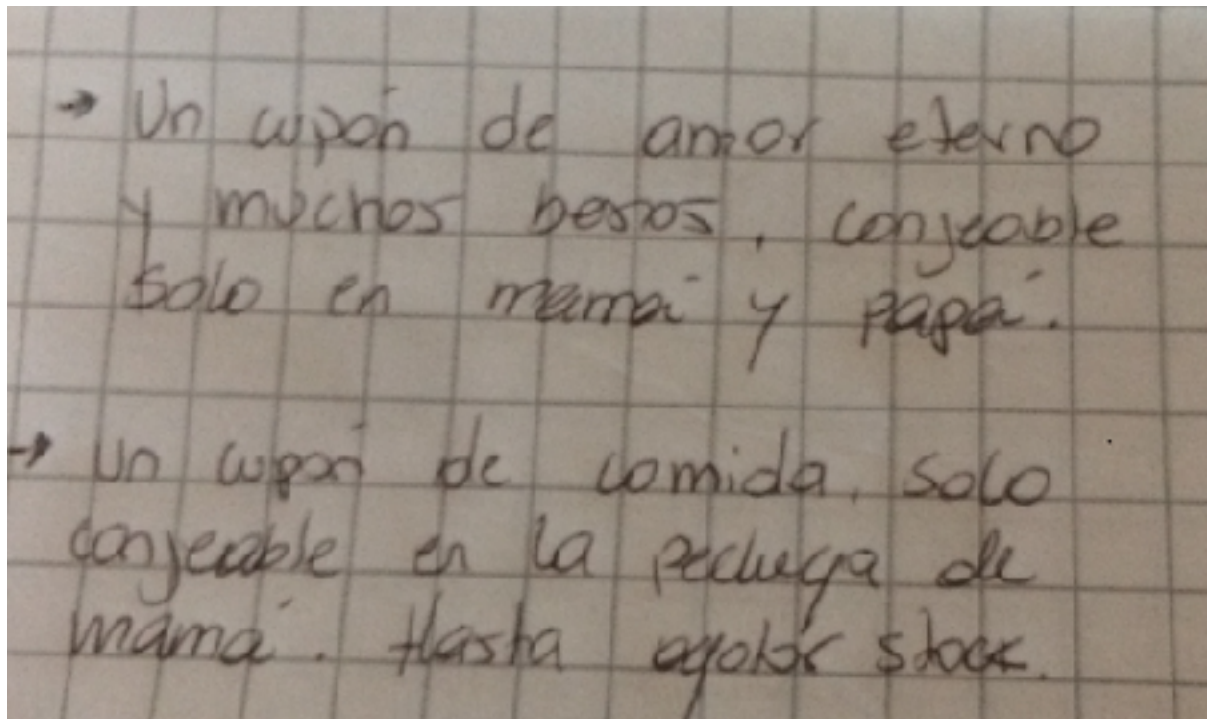 → Un cupón de amor eterno
y muchos besos, conjeable
solo en mamá y papá.
→ Un cupón de comida, solo
conjeable en la pechuga de
mamá. Hasta agotar stock.